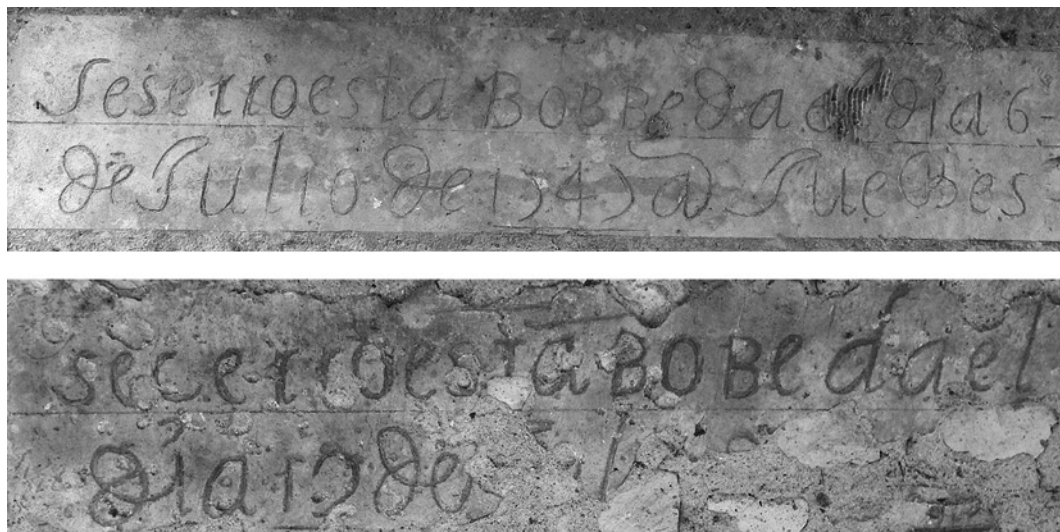 Se serro esta BOBBeda el dia 6
de Julio de 1747 a JueBes
se cerro esta BOBeda el
dia de